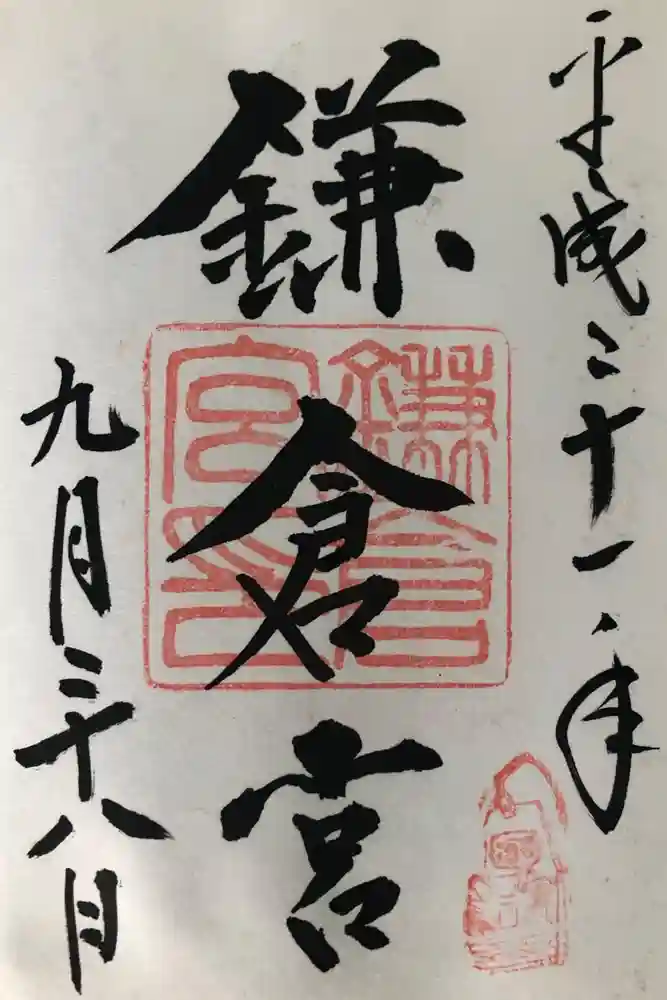 平成二十一年
鎌倉宮
鎌倉宮印
九月二十八日